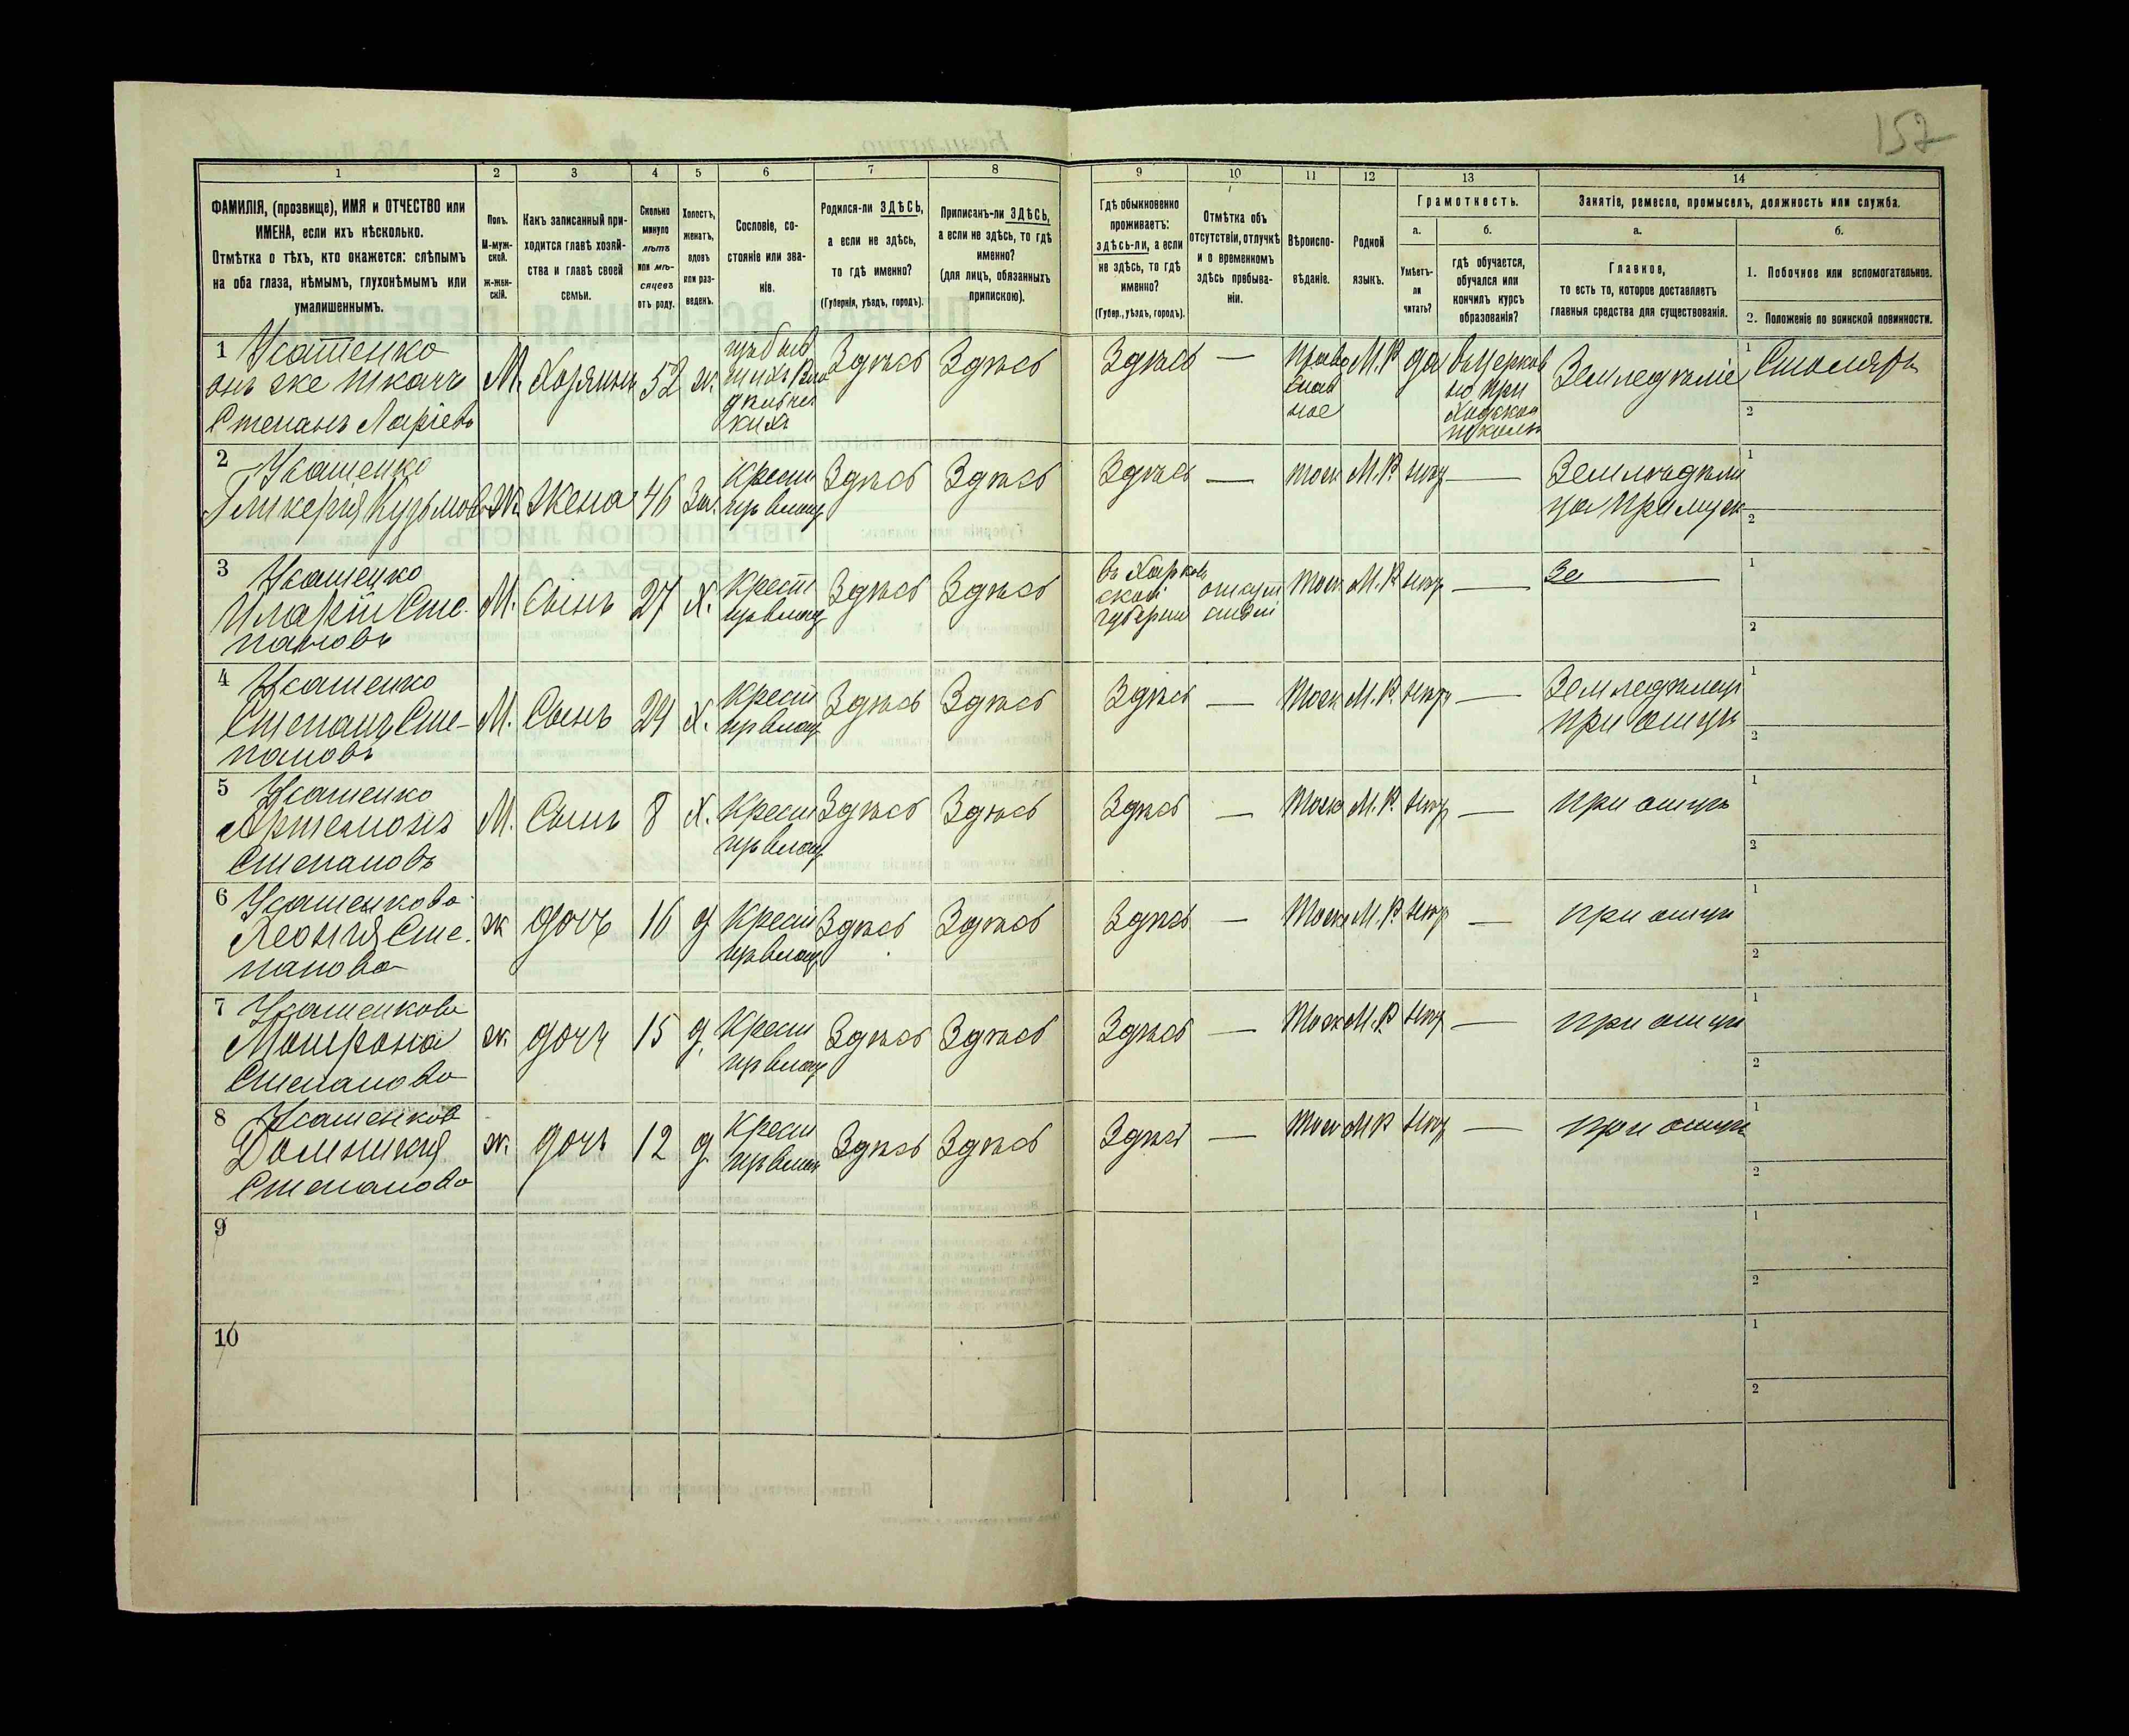 157
1 2 3 4 5 6 7 8 9 10 11 12 13 14
ФАМИЛІЯ, (прозвище), ИМЯ и ОТЧЕСТВО или ИМЕНА, если ихъ нѣсколько.
Отмѣтка о тѣхъ, кто окажется: слѣпымъ на оба глаза, нѣмымъ, глухонѣмымъ или умалишеннымъ.
Полъ.
М-мужской.
ж-женскій.
Какъ записанный приходится главѣ хозяйства и главѣ своей семьи.
Сколько минуло лѣтъ или мѣсяцевъ отъ роду.
Холостъ, женатъ, вдовъ или разведенъ.
Сословіе, состояніе или званіе.
Родился-ли ЗДѢСЬ, а если не здѣсь, то гдѣ именно?
(Губернія, уѣздъ, городъ).
Приписанъ-ли ЗДѢСЬ, а если не здѣсь, то гдѣ именно?
(для лицъ, обязанныхъ припискою).
Гдѣ обыкновенно проживаетъ: здѣсь-ли, а если не здѣсь, то гдѣ именно?
(Губер., уѣздъ, городъ).
Отмѣтка объ отсутствіи, отлучкѣ и о временномъ здѣсь пребываніи.
Вѣроисповѣданіе.
Родной языкъ.
Грамотность.
а.
Умѣетъ-ли читать?
б.
гдѣ обучается, обучался или кончилъ курсъ образованія?
Занятіе, ремесло, промыселъ, должность или служба.
а.
Главное,
то есть то, которое доставляетъ главныя средства для существованія.
б.
1. Побочное или вспомогательное.
2. Положеніе по воинской повинности.
1 Усатенко
онъ же Ткачъ
Степанъ Ларіевъ
М. Хозяинъ 52 ж. Здѣсь Здѣсь Здѣсь — Православное М.Р да Земледѣліе
1 Столяръ
2
2 Усатенко
Гликерія Кузьмов
Ж. Жена 46 Зам. Крест
Здѣсь Здѣсь Здѣсь — тоже М.Р. нѣтъ —
1
2
3 Усатенко
Иларій Сте-
пановъ
М. Сынъ 27 Х. Крест
Здѣсь Здѣсь
въ Харьков
ской
губерніи
тоже М.Р нѣтъ — Зе
1
2
4 Усатенко
Степанъ Сте-
пановъ
М. Сынъ 24 Х. Крест
Здѣсь Здѣсь Здѣсь — тоже М.Р. нѣтъ —
при отцѣ
1
2
5 Усатенко
Артемонъ
Степановъ
М. Сынъ 8 Х. Крест
Здѣсь Здѣсь Здѣсь — тоже М.Р. нѣтъ — при отцѣ
1
2
6 Усатенкова
Леонтія Сте-
панова
ж дочь 16 д Крест
Здѣсь Здѣсь Здѣсь — тоже М.Р нѣтъ — при отцѣ
1
2
7 Усатенкова
Матрона
Степанова
ж. дочь 15 д. Крест
Здѣсь Здѣсь Здѣсь — тоже М.Р нѣтъ — при отцѣ
1
2
8 Усатенков
Домникія
Степанова
ж. дочь 12 д Крест
Здѣсь Здѣсь Здѣсь — тоже М Р нѣтъ — при отцѣ
1
2
9
1
2
10
1
2